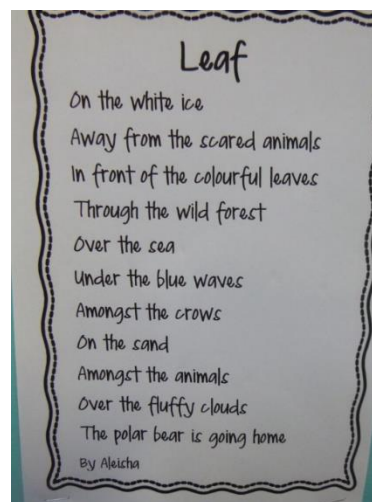 Leaf
On the white ice
Away from the scared animals
In front of the colourful leaves
Through the wild forest
Over the sea
Under the blue waves
Amongst the crows
On the sand
Amongst the animals
Over the fluffy clouds
The polar bear is going home
By Aleisha